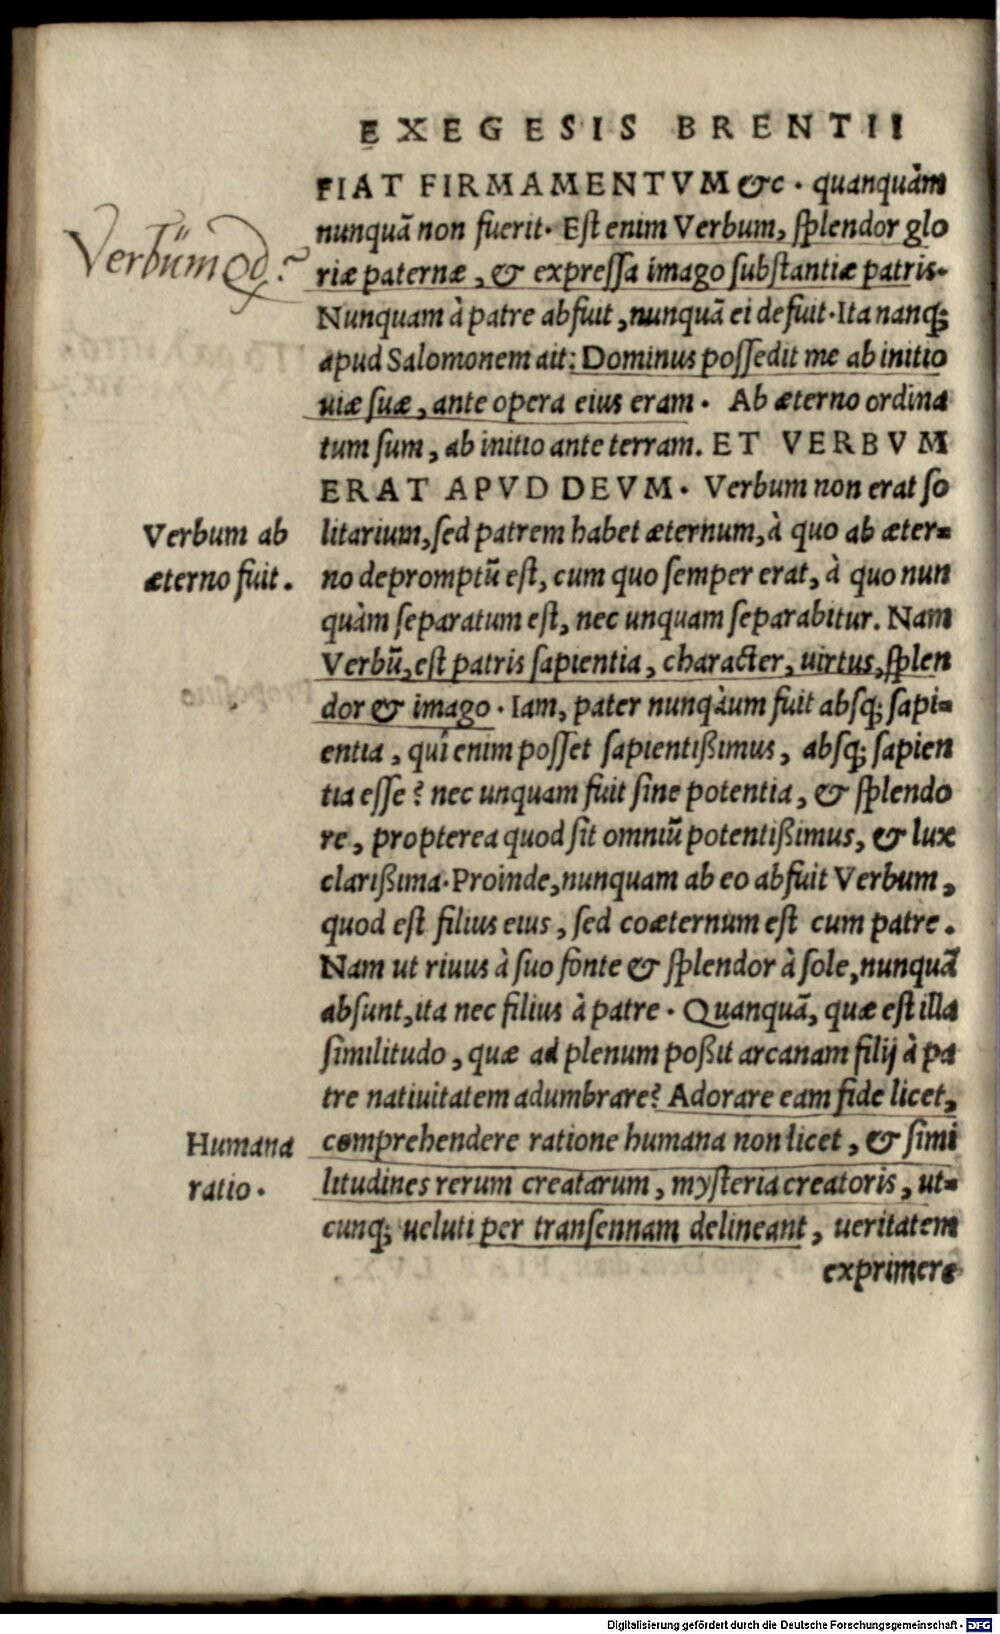 EXEGESIS BRENTII
FIAT FIRMAMENTVM &c. quanquàm
nunquā non fuerit. Est enim Verbum, splendor glo
Verbüm qd?
riæ paternæ, & expressa imago substantiæ patris.
Nunquam à patre abfuit, nunquā ei defuit. Ita nanq;
apud Salomonem ait: Dominus possedit me ab initio
uiæ suæ, ante opera eius eram. Ab æterno ordina
tum sum, ab initio ante terram. ET VERBVM
ERAT APVD DEVM. Verbum non erat so
Verbum ab
æterno fuit.
litarium, sed patrem habet æternum, à quo ab æter=
no depromptū est, cum quo semper erat, à quo nun
quàm separatum est, nec unquam separabitur. Nam
Verbū, est patris sapientia, character, uirtus, splen
dor & imago. Iam, pater nunqàum fuit absq; sapi=
entia, qui enim posset sapientißimus, absq; sapien
tia esse? nec unquam fuit sine potentia, & splendo
re, propterea quod sit omniū potentißimus, & lux
clarißima. Proinde, nunquam ab eo abfuit Verbum,
quod est filius eius, sed coæternum est cum patre.
Nam ut riuus à suo fonte & splendor à sole, nunquā
absunt, ita nec filius à patre. Quanquā, quæ est illa
similitudo, quæ ad plenum poßit arcanam filij à pa
tre natiuitatem adumbrare? Adorare eam fide licet,
Humana
ratio.
comprehendere ratione humana non licet, & simi
litudines rerum creatarum, mysteria creatoris, ut=
cunq; ueluti per transennam delineant, ueritatem
exprimere
Digitalisierung gefördert durch die Deutsche Forschungsgemeinschaft - DFG